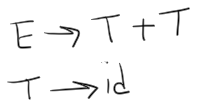 E → T + T
T → id